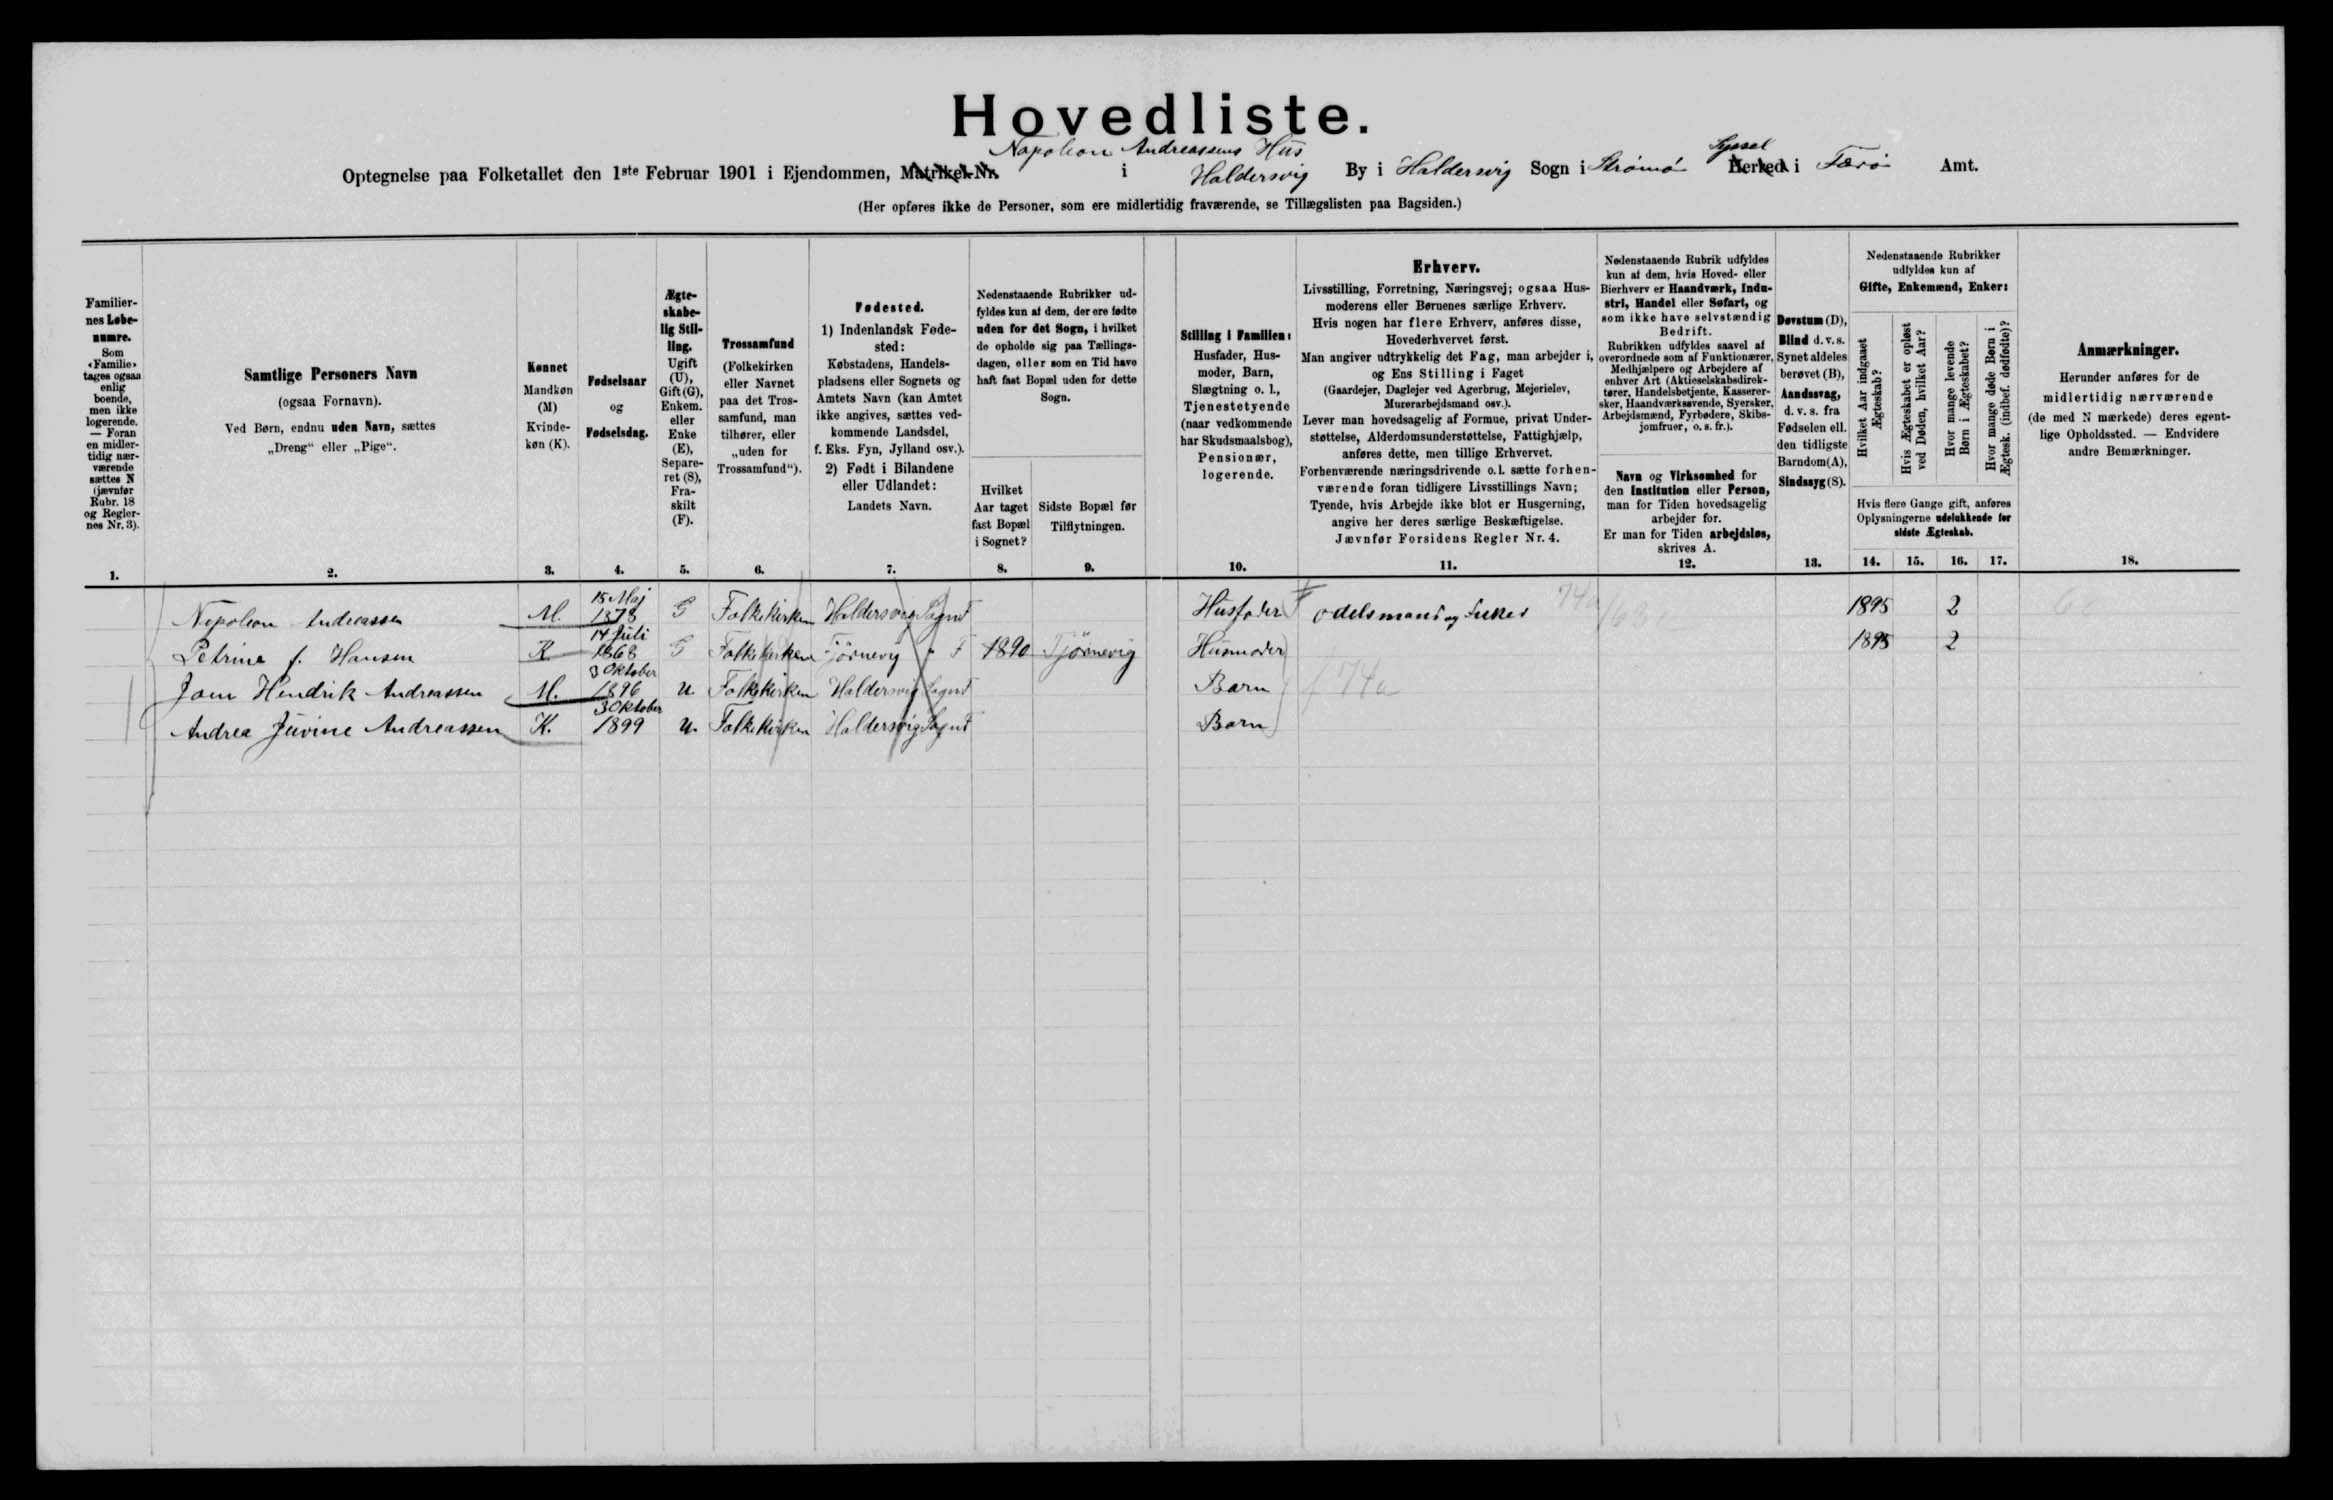 Hovedliste.
Napoleon Andreassens Hus
Optegnelse paa Folketallet den 1ste Februar 1901 i Ejendommen, Matrikel-Nr. i Haldersvig By i Haldersvig Sogn i Strømø Herked Syssel i Færø Amt.
(Her opføres ikke de Personer, som ere midlertidig fraværende, se Tillægslisten paa Bagsiden.)
Familiernes Løbenumre.
Som «Familie» tages ogsaa enlig boende, men ikke logerende. — Foran en midlertidig nærværende sættes N (jævnfør Rubr. 18 og Reglernes Nr. 3).
Samtlige Personers Navn
(ogsaa Fornavn).
Ved Børn, endnu uden Navn, sættes
„Dreng“ eller „Pige“.
Kønnet
Mandkøn (M)
Kvindekøn (K).
Fødselsaar
og
Fødselsdag.
Ægteskabelig Stilling.
Ugift (U), Gift (G), Enkem. eller Enke (E), Separeret (S), Fraskilt (F).
Trossamfund
(Folkekirken eller Navnet paa det Trossamfund, man tilhører, eller „uden for Trossamfund“).
Fødested.
1) Indenlandsk Fødested:
Købstadens, Handelspladsens eller Sognets og Amtets Navn (kan Amtet ikke angives, sættes vedkommende Landsdel, f. Eks. Fyn, Jylland osv.).
2) Født i Bilandene eller Udlandet:
Landets Navn.
Nedenstaaende Rubrikker udfyldes kun af dem, der ere fødte uden for det Sogn, i hvilket de opholde sig paa Tællingsdagen, eller som en Tid have haft fast Bopæl uden for dette Sogn.
Hvilket Aar taget fast Bopæl i Sognet?
Sidste Bopæl før Tilflytningen.
Stilling i Familien:
Husfader, Husmoder, Barn, Slægtning o. l., Tjenestetyende (naar vedkommende har Skudsmaalsbog), Pensionær, logerende.
Erhverv.
Livsstilling, Forretning, Næringsvej; ogsaa Husmoderens eller Børnenes særlige Erhverv.
Hvis nogen har flere Erhverv, anføres disse, Hovederhvervet først.
Man angiver udtrykkelig det Fag, man arbejder i, og Ens Stilling i Faget
(Gaardejer, Daglejer ved Agerbrug, Mejerielev, Murerarbejdsmand osv.).
Lever man hovedsagelig af Formue, privat Understøttelse, Alderdomsunderstøttelse, Fattighjælp, anføres dette, men tillige Erhvervet.
Forhenværende næringsdrivende o. l. sætte forhenværende foran tidligere Livsstillings Navn;
Tyende, hvis Arbejde ikke blot er Husgerning, angive her deres særlige Beskæftigelse.
Jævnfør Forsidens Regler Nr. 4.
Nedenstaaende Rubrik udfyldes kun af dem, hvis Hoved- eller Bierhverv er Haandværk, Industri, Handel eller Søfart, og som ikke have selvstændig Bedrift.
Rubrikken udfyldes saavel af overordnede som af Funktionærer, Medhjælpere og Arbejdere af enhver Art (Aktieselskabsdirektører, Handelsbetjente, Kasserersker, Haandværkssvende, Syersker, Arbejdsmænd, Fyrbødere, Skibsjomfruer, o. s. fr.).
Navn og Virksomhed for den Institution eller Person, man for Tiden hovedsagelig arbejder for.
Er man for Tiden arbejdsløs, skrives A.
Døvstum (D), Blind d. v. s. Synet aldeles berøvet (B), Aandssvag, d. v. s. fra Fødselen ell. den tidligste Barndom (A), Sindssyg (S).
Nedenstaaende Rubrikker udfyldes kun af Gifte, Enkemænd, Enker:
Hvilket Aar indgaaet Ægteskab?
Hvis Ægteskabet er opløst ved Døden, hvilket Aar?
Hvor mange levende Børn i Ægteskabet?
Hvor mange døde Børn i Ægtesk. (indbef. dødfødte)?
Hvis flere Gange gift, anføres Oplysningerne udelukkende for sidste Ægteskab.
Anmærkninger.
Herunder anføres for de midlertidig nærværende (de med N mærkede) deres egentlige Opholdssted. — Endvidere andre Bemærkninger.
1. 2. 3. 4. 5. 6. 7. 8. 9. 10. 11. 12. 13. 14. 15. 16. 17. 18.
Napoleon Andreassen M. 15 Maj 1878 G Folkekirken Haldersvig Sogn F Husfader Odelsmand og Fisker 1895 2
Petrine f. Hansen K 14 Juli 1868 G Folkekirken Tjörnevig " F 1890 Tjörnevig Husmoder 1895 2
Joen Hendrik Andreassen M. 3 Oktober 1896 U. Folkekirken Haldersvig Sogn F Barn 74a
Andrea Juvine Andreassen K. 3 Oktober 1899 U. Folkekirken Haldersvig Sogn F Barn